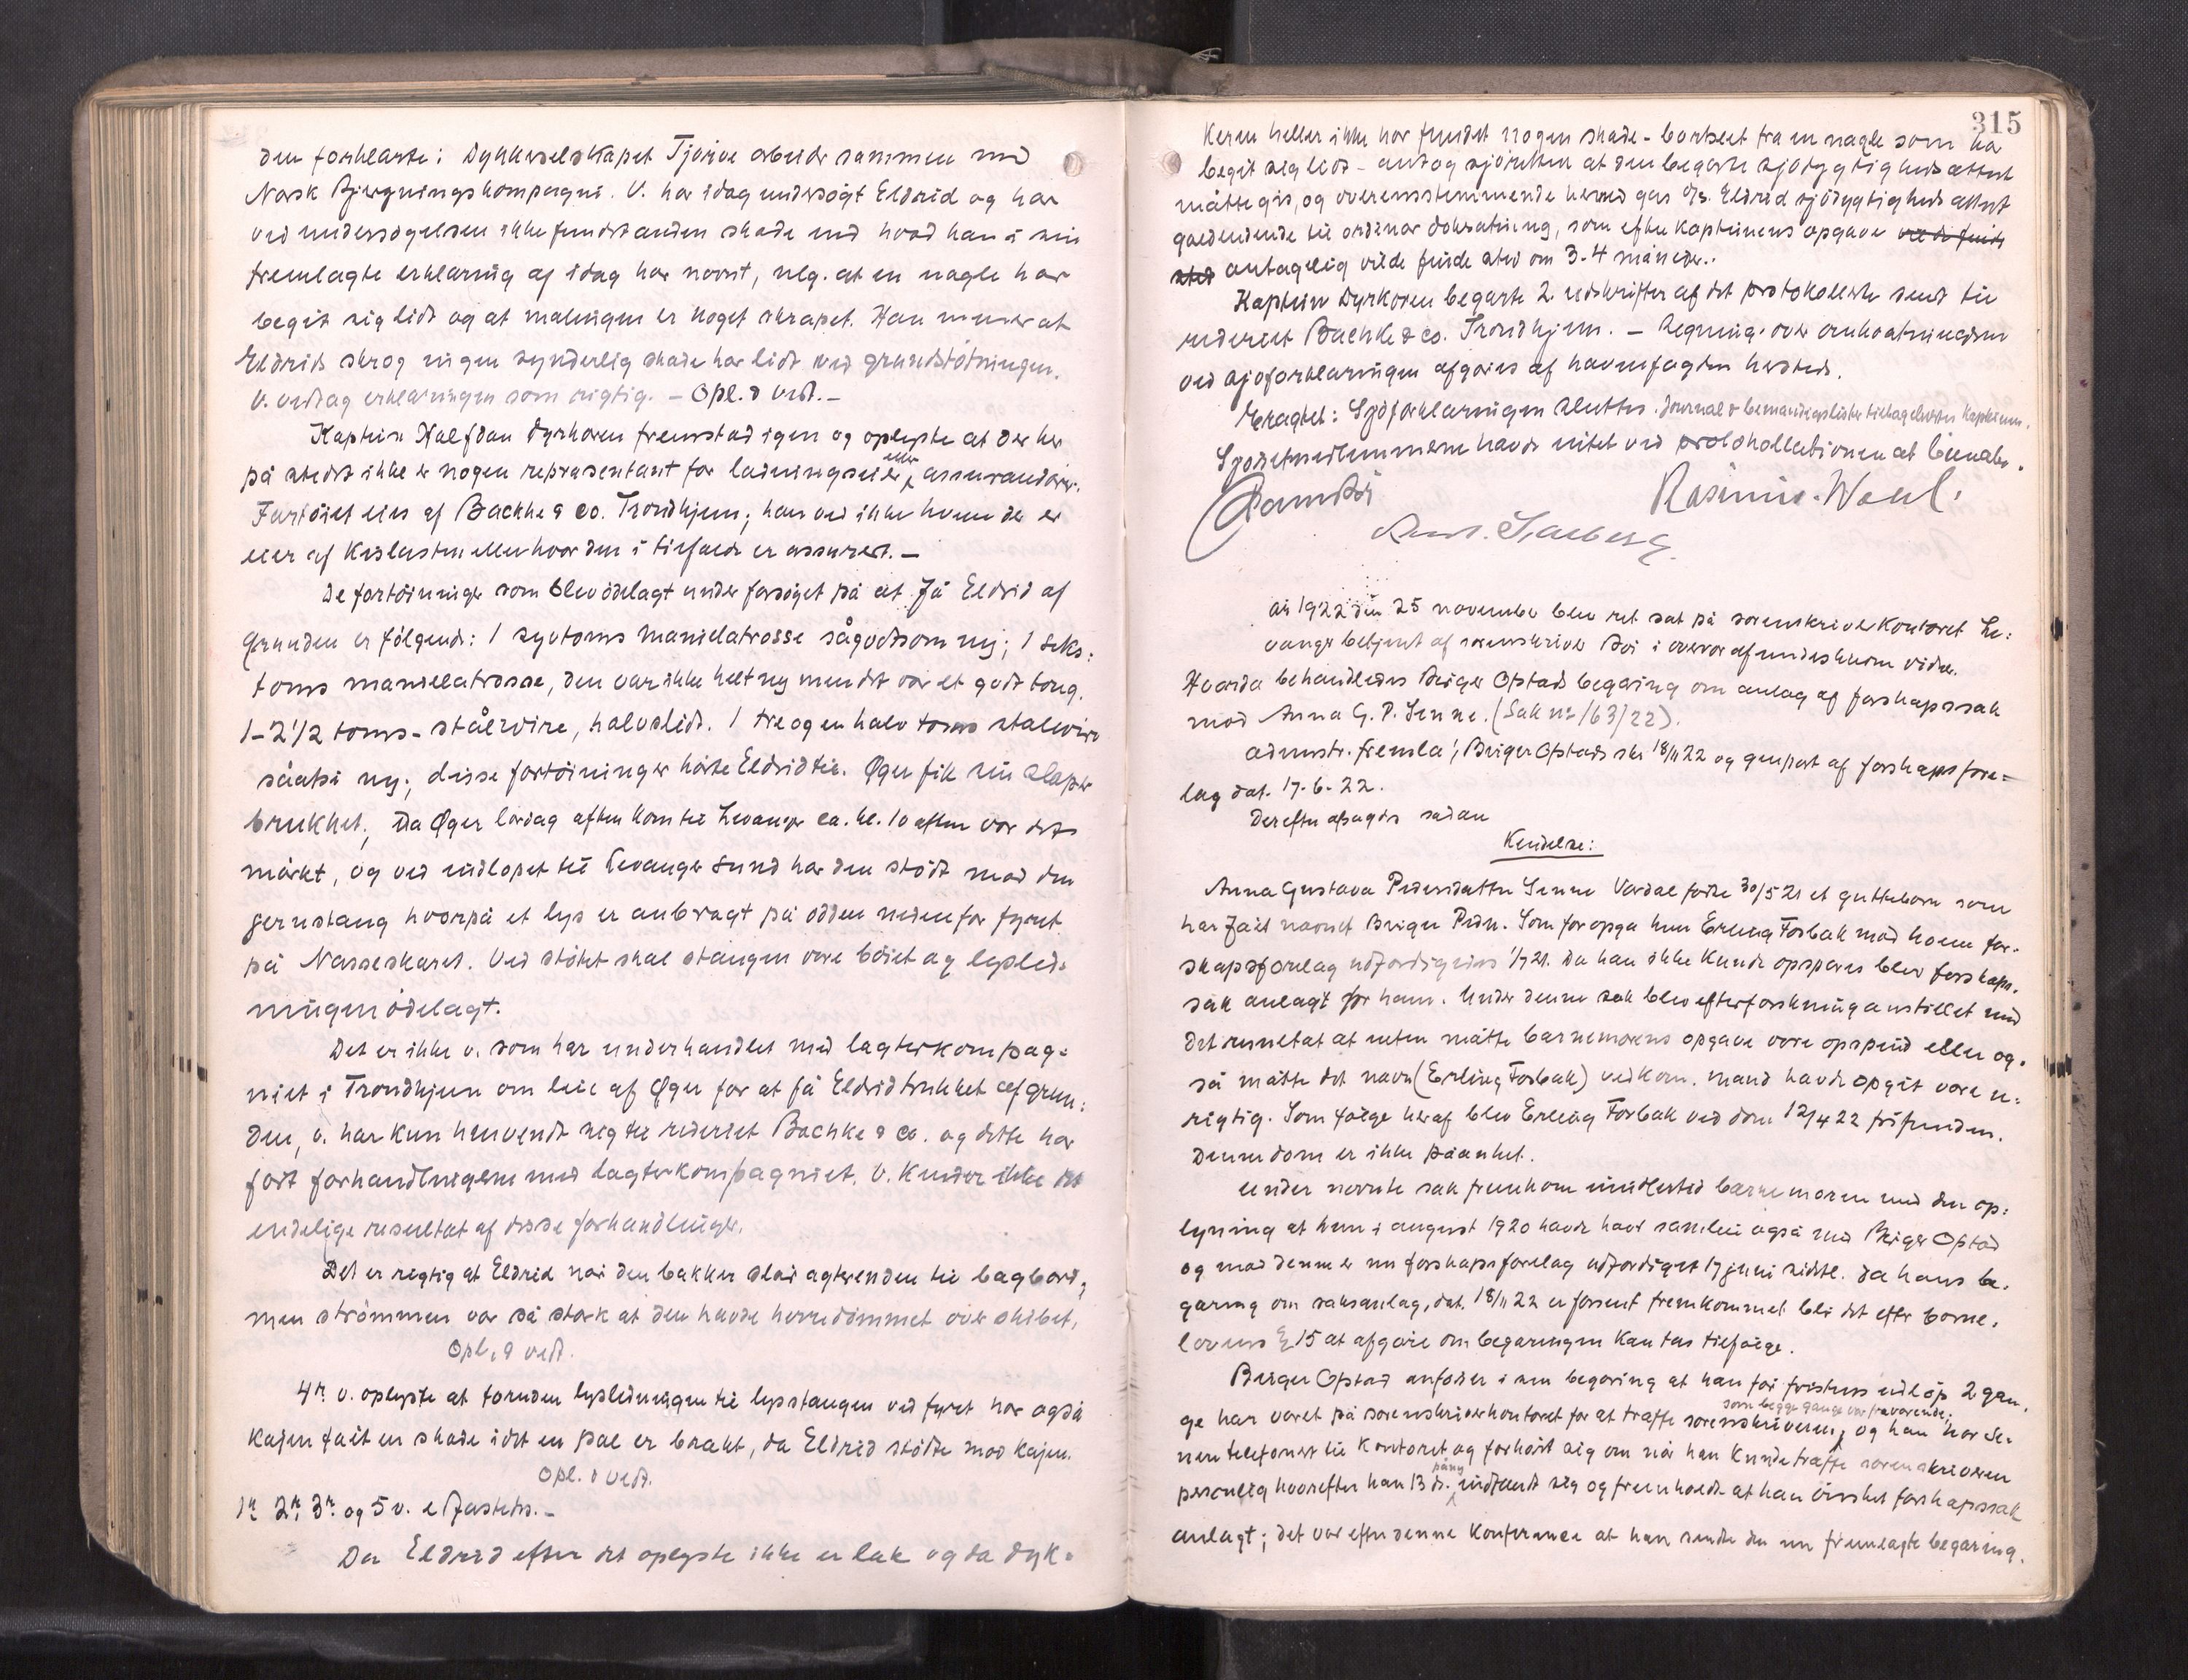 den forklarte: Dykkerselskapet Tjorve arbeider sammen med
Norsk Bjergningskompagni. V. har idag undersøgt Eldrid og har
ved undersøgelsen ikke fundet anden skade end hvad han i sin
fremlagte erklæring af idag har nævnt, nlg. at en nagle har
begit sig lidt og at malingen er noget skrapet. Han mener at
Eldrids skrog ingen synderlig skade har lidt ved grundstötningen.
V. vedtag erklæringen som rigtig. – Opl. & vedt. –
Kaptein Halfdan Dyrkoren fremstod igen og oplyste at der her
på stedet ikke er nogen repræsentant for ladningseier eller assurandörer.
Fartöiet eies af Bachke & co. Trondhjem; han ved ikke hvem der er
eier af Kislasten eller hvor den i tilfælde er assurert. –
De fortöininger som blev ödelagt under forsöget på at få Eldrid af
Grunden er fölgende: 1 syvtoms manillatrosse sågodtsom ny; 1 seks:
toms manillatrosse, den var ikke helt ny men det var et godt toug.
1 – 2 1/2 toms – stålwire, halvslidt. 1 tre og en halv toms stalwire
såatsi ny; disse fortöininger hörte Eldrid til. Øger fik sin slæper
brukket; Da Øger lördag aften kom til Levanger ca. kl. 10 aften var det
mörkt, og ved indlöpet til Levanger sund har den stödt mod den
jernstang hvorpå et lys er anbragt på odden nedenfor fyret
på Nesseskaret. Ved stötet skal stangen være böiet og lysled:
ningen ödelagt.
Det er ikke v. som har underhandlet med lagterkompag:
niet i Trondhjem om leie af Øger for at få Eldrid trukket af grun:
den, v. har kun henvendt sig til rederiet Bachke & co. og dette har
fört forhandlingerne med lagterkompagniet. V. kender ikke det
endelige resultat af disse forhandlinger.
Det er rigtig at Eldrid når den bakker slår agterenden til bagbord;
men strömmen var så stærk at den havde herredömmet over skibet,
Opl. & vedt.
4n v. oplyste at foruden lysledningen til lysstangen ved fyret har også
Kajen fåit en skade idet en pæl er brækt, da Eldrid stödte mod kajen.
Opl. & vedt.
1n 2n 3n og 5 v. efrastedes. –
Da Eldrid efter det oplyste ikke er læk og da dyk:
315
keren heller ikke har fundet nogen skade – bortseet fra en nagle som har
begit sig lidt – antog sjöretten at den begærte sjödygtighedsattest
måtte gis, og overensstemmende hermed gas D/s. Eldrid sjödygtigheds attest
gældende til ordinær doksætning, som efter kapteinens opgave
antagelig vilde finde sted om 3-4 måneder.
Kaptein Dyrkoren begærte 2 udskrifter af det protokollerte sendt til
rederiet Bachke & co. Trondhjem. – Regning over omkostningerne
ved sjöforklaringen afgöres af havnefogden hersteds.
Eragtet: Sjöforklaringen sluttes. Journal & bemandingsliste tilbageleveres kapteinen.
Sjöretsmedlemmerne havde nitet ved protokollationen at bemerke.
Rasmus Wohl.
År 1922 den 25 november blev ret sat på sorenskriverkontoret Le:
vanger betjent af sorenskriver Boi i overvær af undeskrevne vidne.
Hvorda behandledes Birger Opstads begæring om anlæg af farskapssak
mod Anna G. P. Senne. (Sak nr 163/22).
Admnstr. fremla 1, Birger Opstads skr 18/11 22 og genpart af farskapsfore=
læg dat. 17.6.22.
Derefter afsagdes sådan
Kendelse:
Anna Gustava Pedersdatter Senne Verdal fødte 30/5 21 et guttebarn som
har fåit navnet Birger Peder. Som far opga hun Erling Forbak mod hvem far:
skapsforelæg udfærdigedes 1/7 21. Da han ikke kunde opspores blev farskaps:
sak anlagt for ham. Under denne sak blev efterforskning anstillet med
det resultat at enten måtte barnemorens opgave være opspind eller og:
så måtte det navn (Erling Forbak) vedkom. mand havde opgit være u:
rigtig. Som fölge heraf blev Erling Forbak ved dom 12/4 22 frifunden.
Denne dom er ikke påanket.
Under nævnte sak fremkom imidlertid barnemoren med den op:
lysning at hun i august 1920 havde havt samleie også med Birger Opstad
og mod denne er nu farskapsforelæg udfærdiget 17 juni sidstl. Da hans be:
gæring om saksanlæg, dat. 18/11 22 er forsent fremkommet blir det efter barne:
lovens § 15 at afgöre om begæringen kan tas tilfölge.
Birger Opstad anförer i sin begæring at han för fristens udlöp 2 gan:
ge har været på sorenskriverkontoret for at træffe sorenskriveren, som begge gange var fraværende; og han har se:
nere telefonert til kontoret og forhört sig om når han kunde træffe sorenskriveren
personlig hvorefter han 13 ds. påny indfandt sig og fremholdt at han önsket farskapssak
anlagt; det var efter denne konferance at han sendte den nu fremlagte begæring.